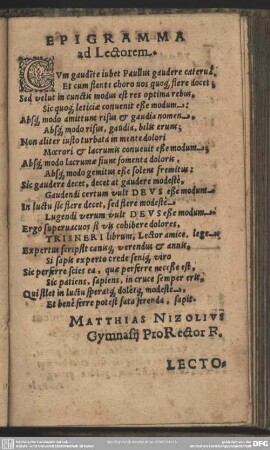 EPIGRAMMA
ad Lectorem.
CVm gaudēte iubet Paullus gaudere caterua,
Et cum flente choro nos quoq; flere docet;
Sed velut in cunctis modus est res optima rebus,
Sic quoq; letitiæ conuenit esse modum:
Absq; modo amittunt risus & gaudia nomen.
Absq; modo risus, gaudia, bilis erunt;
Non aliter iusto turbata in mente dolori
Mærori & lacrumis conuenit esse modum:
Absq; modo lacrumæ fiunt fomenta doloris,
Absq; modo gemitus esse solent fremitus:
Sic gaudere decet, decet at gaudere modestè,
Gaudendi certum vult DEVS esse modum.
In luctu sic flere decet, sed flere modestè.
Lugendi verum vult DEVS esse modum.
Ergo superuacuos si vis cohibere dolores,
TRISNERI librum, Lector amice, lege.
Expertus scripsit canis, verendus & annis,
Si sapis experto crede senig, viro
Sic perferre scies ea, quæ perferre necesse est,
Sic patiens, sapiens, in cruce semper erit,
Qui silet in luctu speratq; doletq; modestè.
Et benè ferre potest fata ferenda, sapit.
MATTHIAS NIZOLIVS
Gymnasij ProRector F.
LECTO-